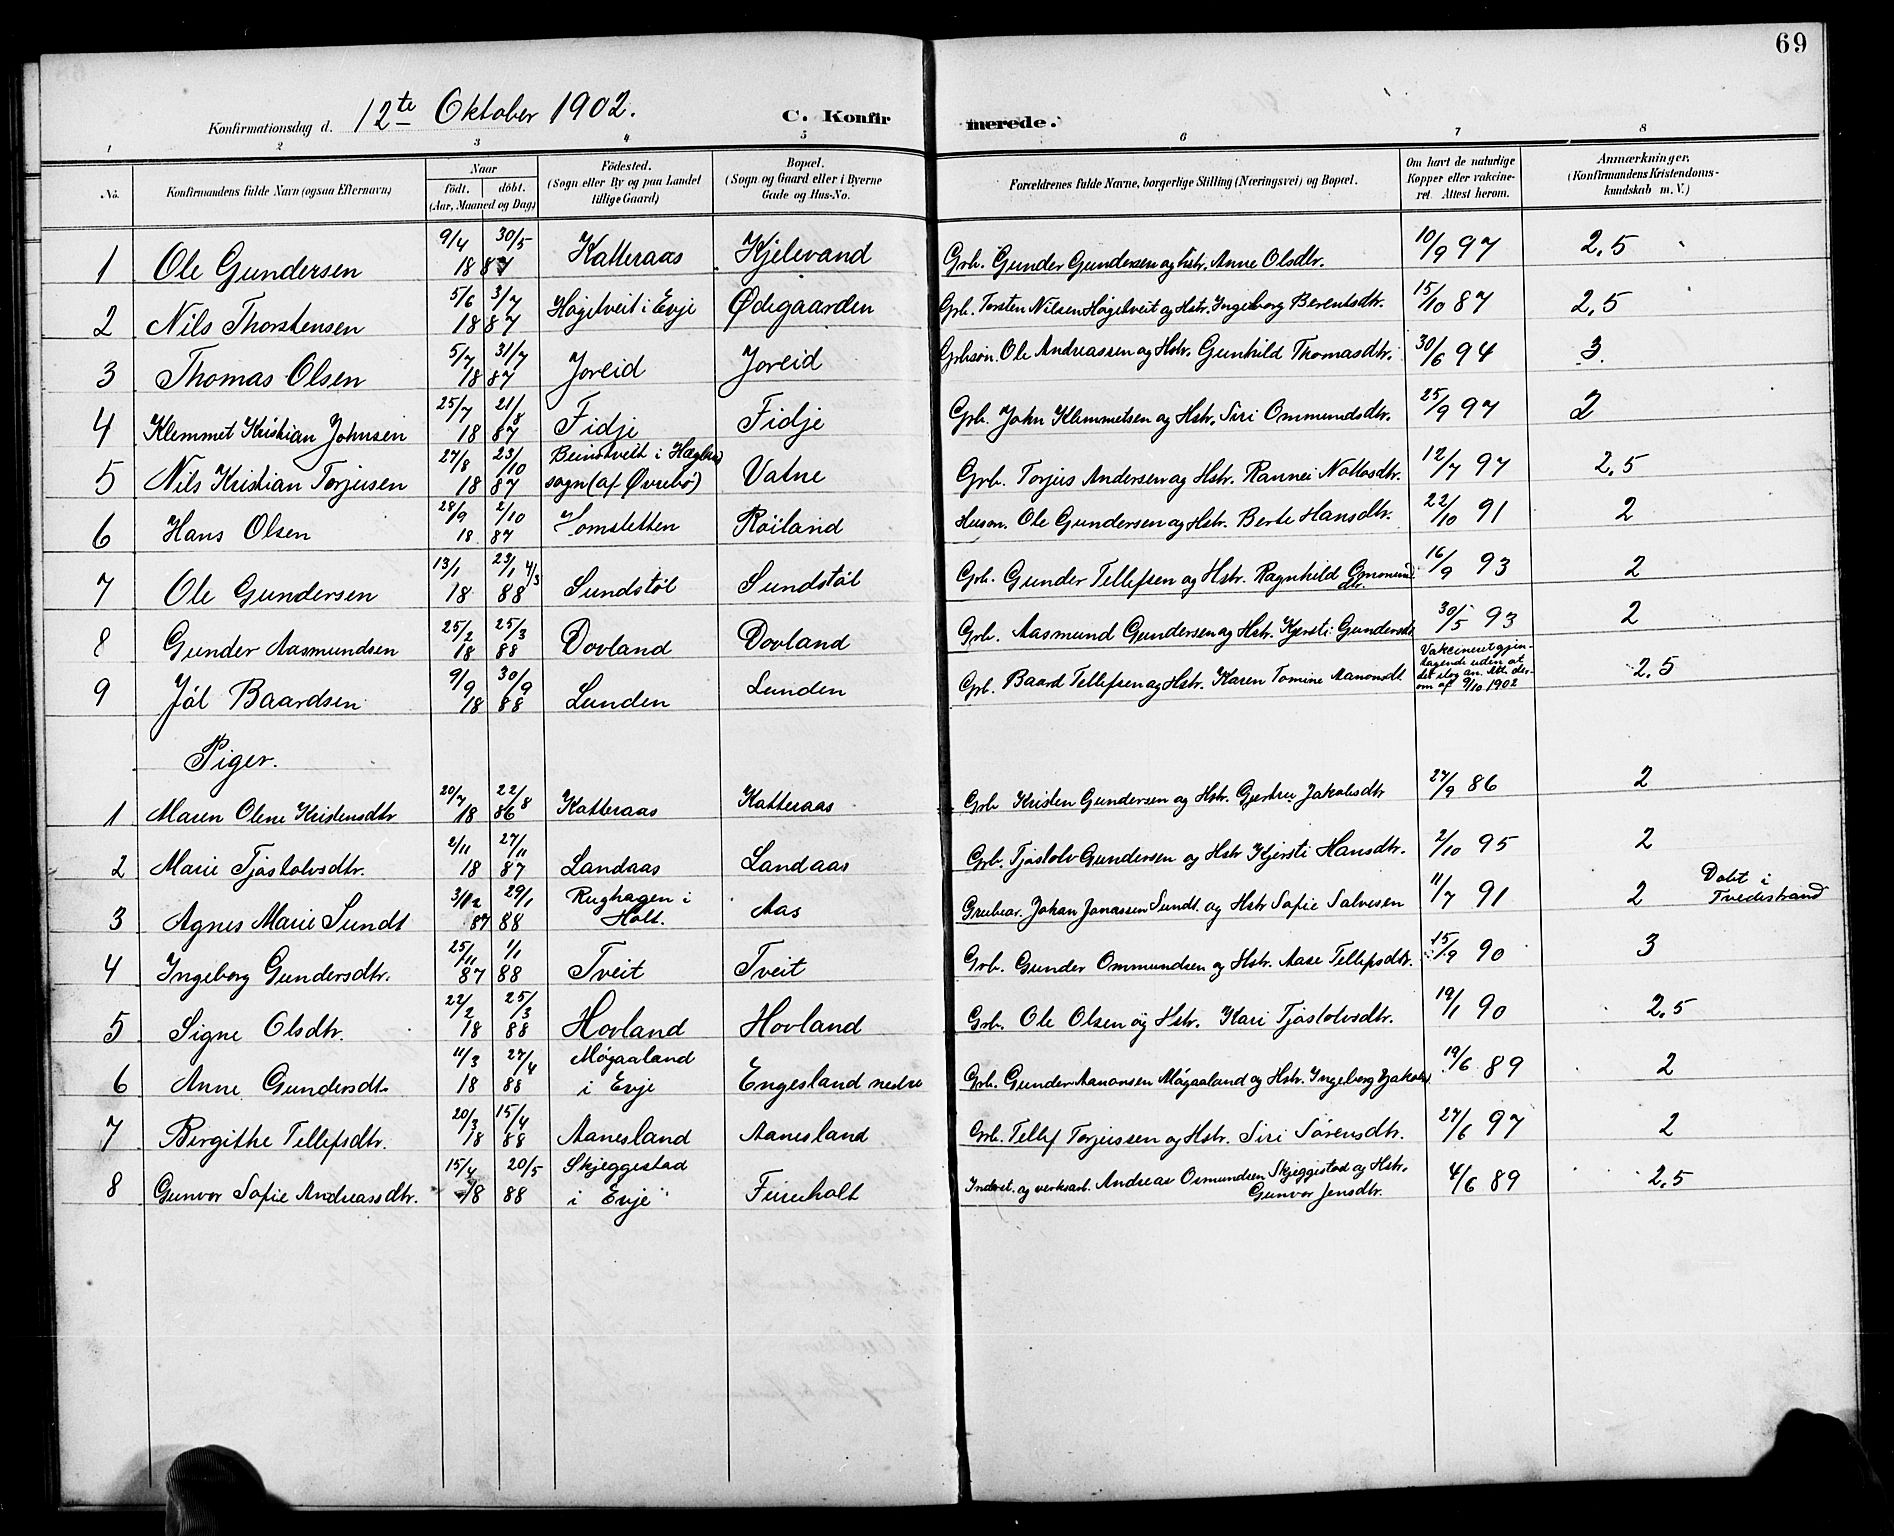 69
Konfirmationsdag d. 12te Oktober 1902. C. Konfirmerede.
1 2 3 4 5 6 7 8
No. Konfirmandens fulde Navn (ogsaa Efternavn) Naar födt. döbt. (Aar, Maaned og Dag) Födested. (Sogn eller By og paa Landet tillige Gaard) Bopæl. (Sogn og Gaard eller i Byerne Gade og Hus-No. Forældrenes fulde Navne, borgerlige Stilling (Næringsvei) og Bopæl. Om havt de naturlige Kopper eller vakcineret. Attest herom. Anmærkninger. (Konfirmandens Kristendomskundskab m. V.)
1 Ole Gundersen 9/4 30/5 1887 Katteraas Kjelevand Grb. Gunder Gundersen og Hstr. Anne Olsdtr. 10/9 97 2,5
2 Nils Thorstensen 5/6 3/7 1887 Högetveit i Evje Ødegaarden Grb. Torsten Nilsen Högetveit og Hstr. Ingeborg Berentsdtr. 15/10 87 2,5
3 Thomas Olsen 5/7 31/7 1887 Joreid Joreid Grbsön. Ole Andreassen og Hstr. Gunhild Thomasdtr. 30/6 94 3.
4 Klemmet Kristian Johnsen 25/7 21/8 1887 Fidje Fidje Grb. John Klemmetsen og Hstr. Siri Ommundsdtr. 25/9 97 2
5 Nils Kristian Torjusen 27/8 23/10 1887 Beinstveit i
sogn (af Øvrebö) Vatne Grb. Torjus Andersen og Hstr. Rannei Nottosdtr. 12/7 97 2,5
6 Hans Olsen 28/9 2/10 1887 Tomstetten Röiland Husm. Ole Gundersen og Hstr. Berte Hansdtr. 22/10 91 2
7 Ole Gundersen 13/1 23/1 4/3 1888 Sundstöl Sundstöl Grb. Gunder Tellefsen og Hstr. Ragnhild Ommundsdtr. 16/9 93 2
8 Gunder Aasmundsen 25/2 25/3 1888 Dovland Dovland Grb. Aasmund Gundersen og Hstr. Kjersti Gundersdt 30/5 93 2
9 Jöl Baardsen 9/9 30/9 1888 Lunden Lunden Grb. Baard Tellefsen og Hstr. Karen Tomine Aanonsdt. Vakcineret gjentagende uden at det slog an. Att. derom af 9/10 1902 2,5
Piger.
1 Maren Olene Kristensdtr 20/7 22/8 1886 Katteraas Katteraas Grb Kristen Gundersen og Hstr. Gjertrue Jakobsdtr 27/9 86 2
2 Marie Tjöstolvsdtr. 2/11 27/11 1887 Landaas Landaas Grb. Tjöstolv Gundersen og Hstr Kjersti Hansdtr. 2/10 95 2
3 Agnes Marie Sundt 3/12 29/1 87 88 Rughagen i Holt. Aas Grubear. Johan Jonassen Sundt. og Hstr Sofie Salvesen 11/7 91 2 Döbt i Tvedestrand
4 Ingeborg Gundersdtr. 25/11 1/1 87 88 Tveit Tveit Grb. Gunder Ommundsen og Hstr. Aase Tellefsdtr. 15/9 90 3
5 Signe Olsdtr. 22/2 25/3 1888 Hovland Hovland Grb. Ole Olsen og Hstr. Kari Tjöstolvsdtr. 19/1 90 2,5
6 Anne Gundersdt. 11/3 27/4 1888 Mögaaland i Evje Engesland nedre Grb. Gunder Aanonsen Mögaaland og Hstr. Ingeborg Jakobs 19/6 89 2
7 Bergithe Tellefsdtr. 20/3 15/4 1888 Aanesland Aanesland Grb. Tellef Torjussen og Hstr. Siri Sörensdtr. 27/6 97 2
8 Gunvor Sofie Andreassdtr. 15/4 20/5 1888 Skjeggestad i Evje Fureholt Inderst. og verksarb. Andreas Osmundsen Skjeggestad og Hstr. Gunvor Jensdtr. 4/6 89 2,5